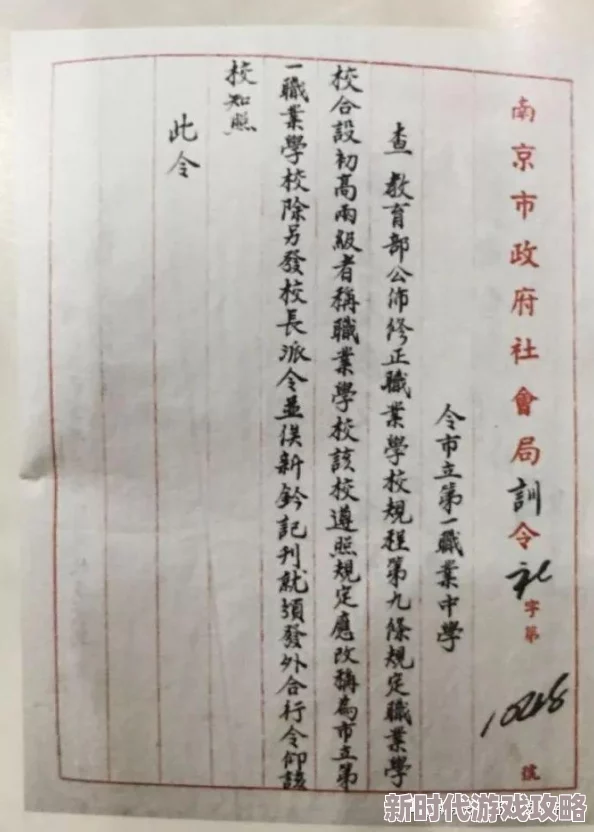 南京市政府社會局訓令 社字第1048號
令市立第一職業中學
查 教育部公佈修正職業學校規程第九條規定職業學
校合設初高兩級者稱職業學校該校遵照規定應改稱為市立第
一職業學校除另發校長派令並俟新鈐記刊就頒發外合行令仰該
校知照
此令
新时代游戏攻略